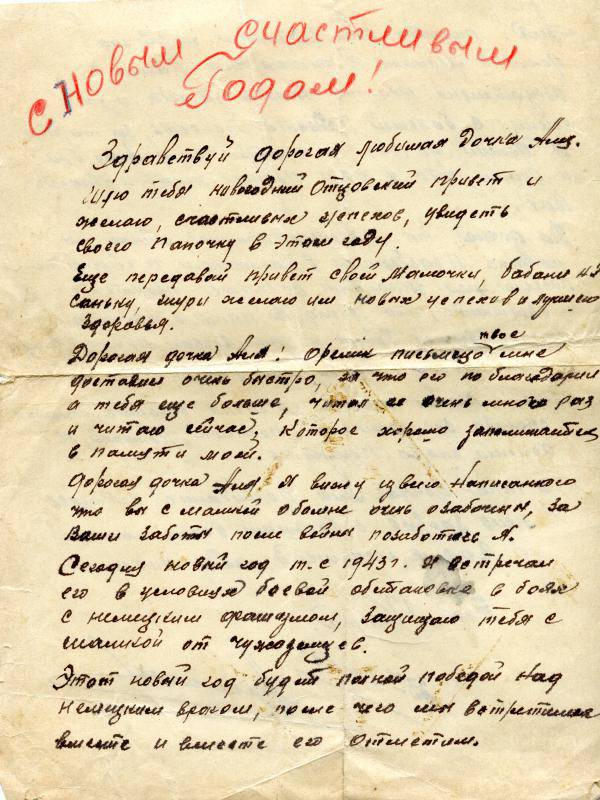 с Новым счастливым
Годом!
Здравствуй дорогая любимая дочка Аля.
Шлю тебя новогодний Отцовский привет и
желаю, счастливых успехов, увидеть
своего папочку в этом году.
Еще передавай привет своей Мамочки, бабане
Саньку, Шури желаю им новых успехов и лучшего
Здоровья.
твое
Дорогая дочка Аля! Орелик письмецо мне
доставил очень быстро, за что его поблагодарил
а тебя еще больше, читал ее очень много раз
и читаю сейчас, которое хорошо запоминается
в памяти моей.
Дорогая дочка Аля, я вижу из всего Написанного
что вы с мамкой обомне очень озабочены, за
Ваши заботы после войны позаботись Я.
Сегодня новый год т.е 1943г. Я встречал
его в условиях боевой обстановке в боях
с немецким фашизмом, защищаю тебя с
мамкой от чужоземцев.
Этот новый год будет полной победой Над
Немецким врагом, после чего мы встретимся
вместе и вместе его отметим.